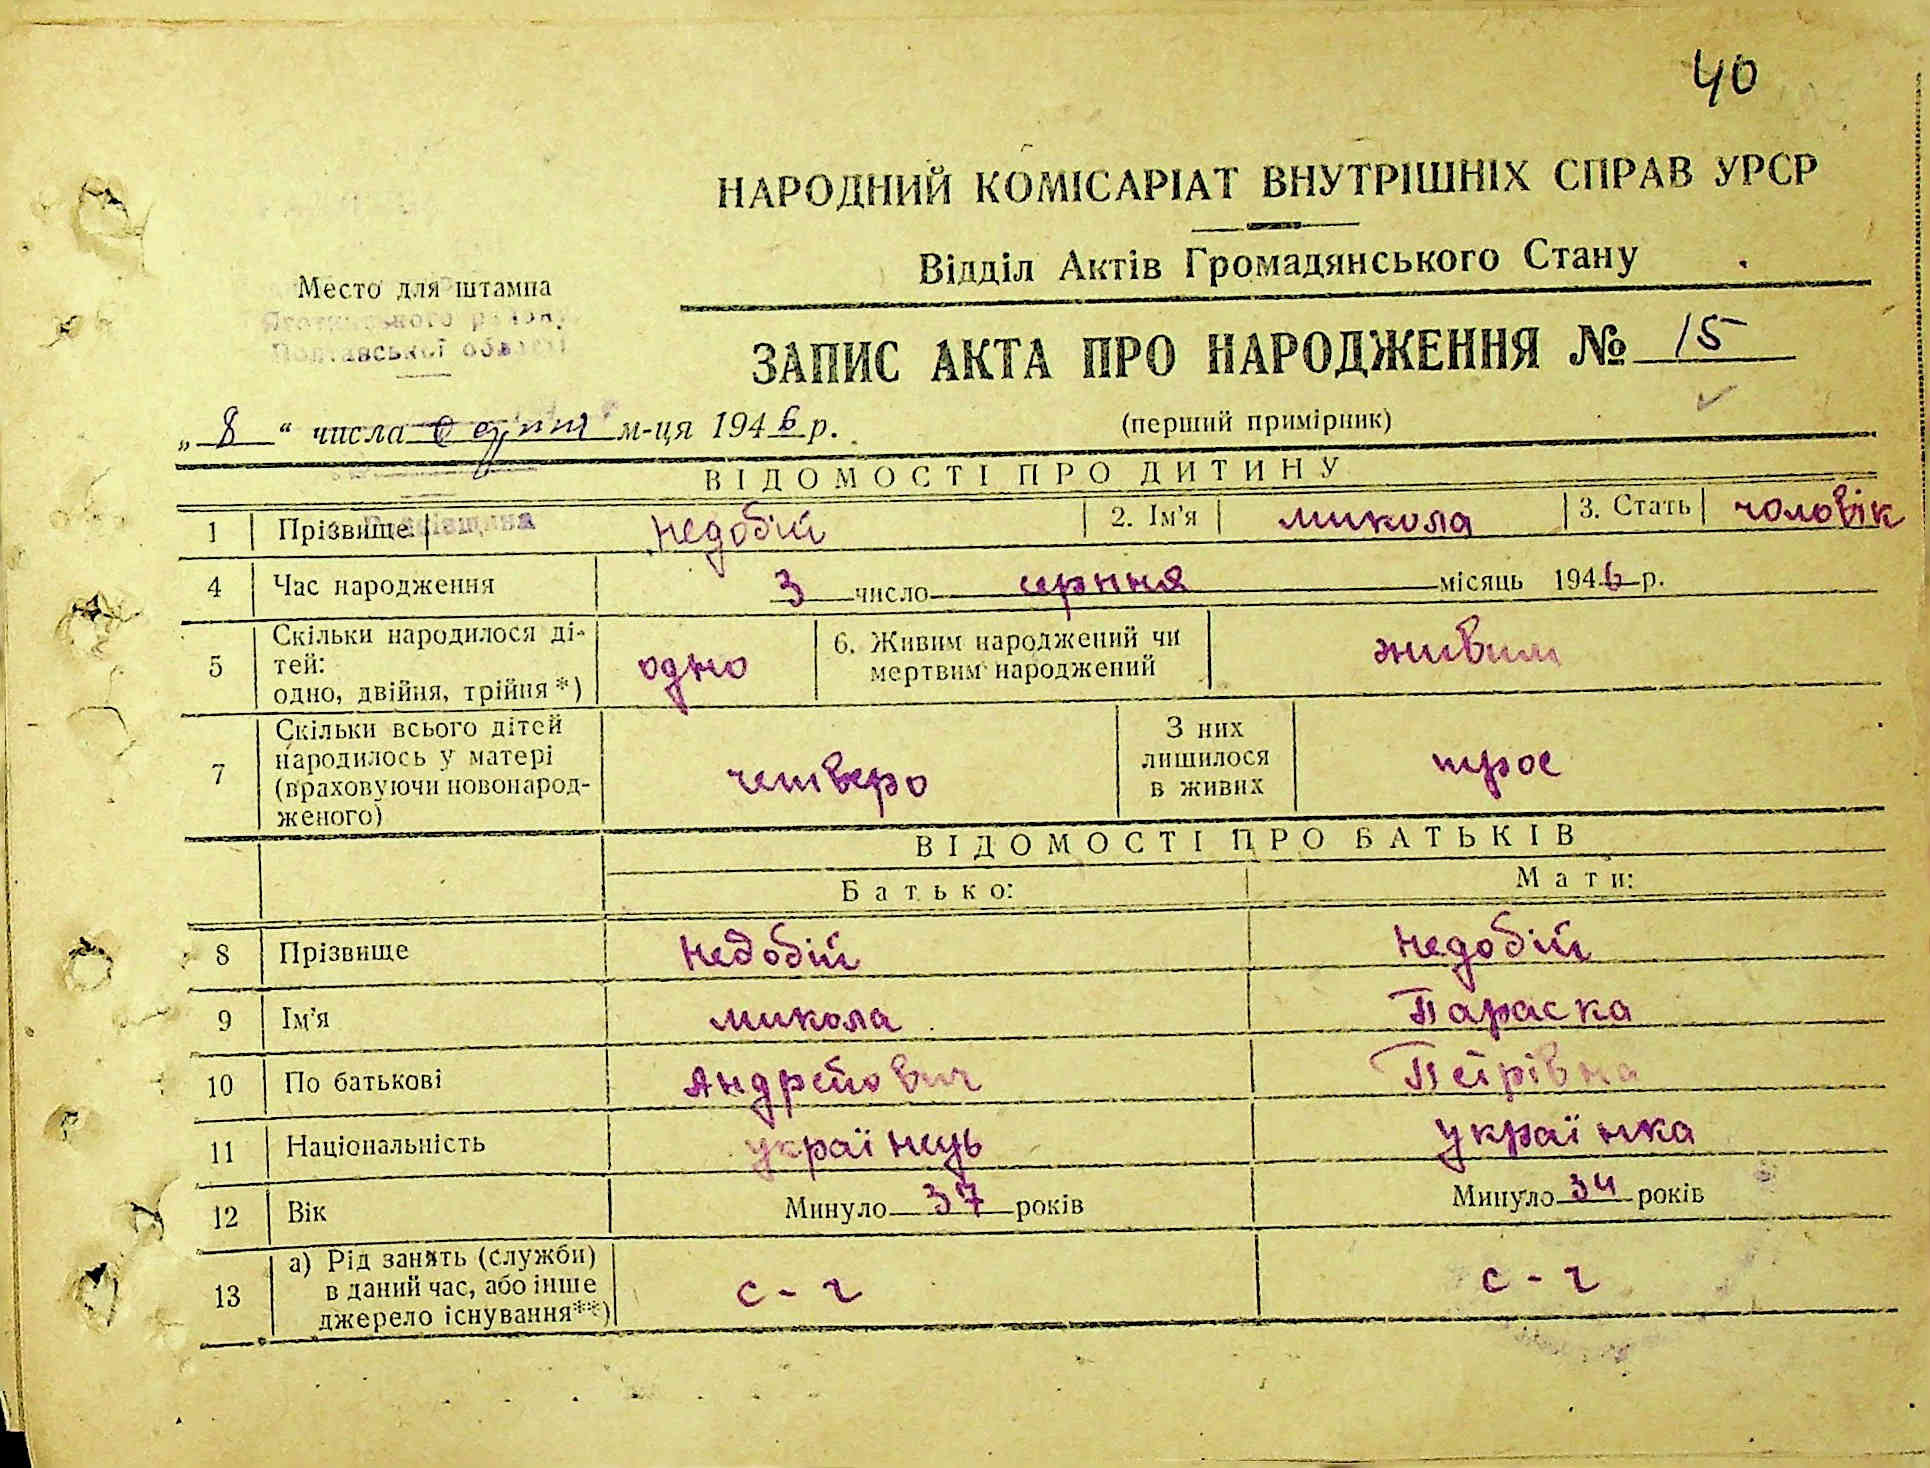 40
НАРОДНИЙ КОМІСАРІАТ ВНУТРІШНІХ СПРАВ УРСР
Відділ Актів Громадянського Стану
Место для штампа
Полтавської області
ЗАПИС АКТА ПРО НАРОДЖЕННЯ № 15
„ 8 “ числа серпня м-ця 1946 р.
(перший примірник)
ВІДОМОСТІ ПРО ДИТИНУ
1 Прізвище недобій 2. Ім'я микола 3. Стать чоловік
4 Час народження 3 число серпня місяць 1946 р.
5 Скільки народилося ді-
тей:
одно, двійня, трійня *) одно 6. Живим народжений чи
мертвим народжений живим
7 Скільки всього дітей
народилось у матері
(враховуючи новонарод-
женого) четверо З них
лишилося
в живих троє
ВІДОМОСТІ ПРО БАТЬКІВ
Батько: Мати:
8 Прізвище недобій недобій
9 Ім'я микола Параска
10 По батькові Андрейович Петрівна
11 Національність українець українка
12 Вік Минуло 37 років Минуло 34 років
13 а) Рід занять (служби)
в даний час, або інше
джерело існування**) с-г с-г